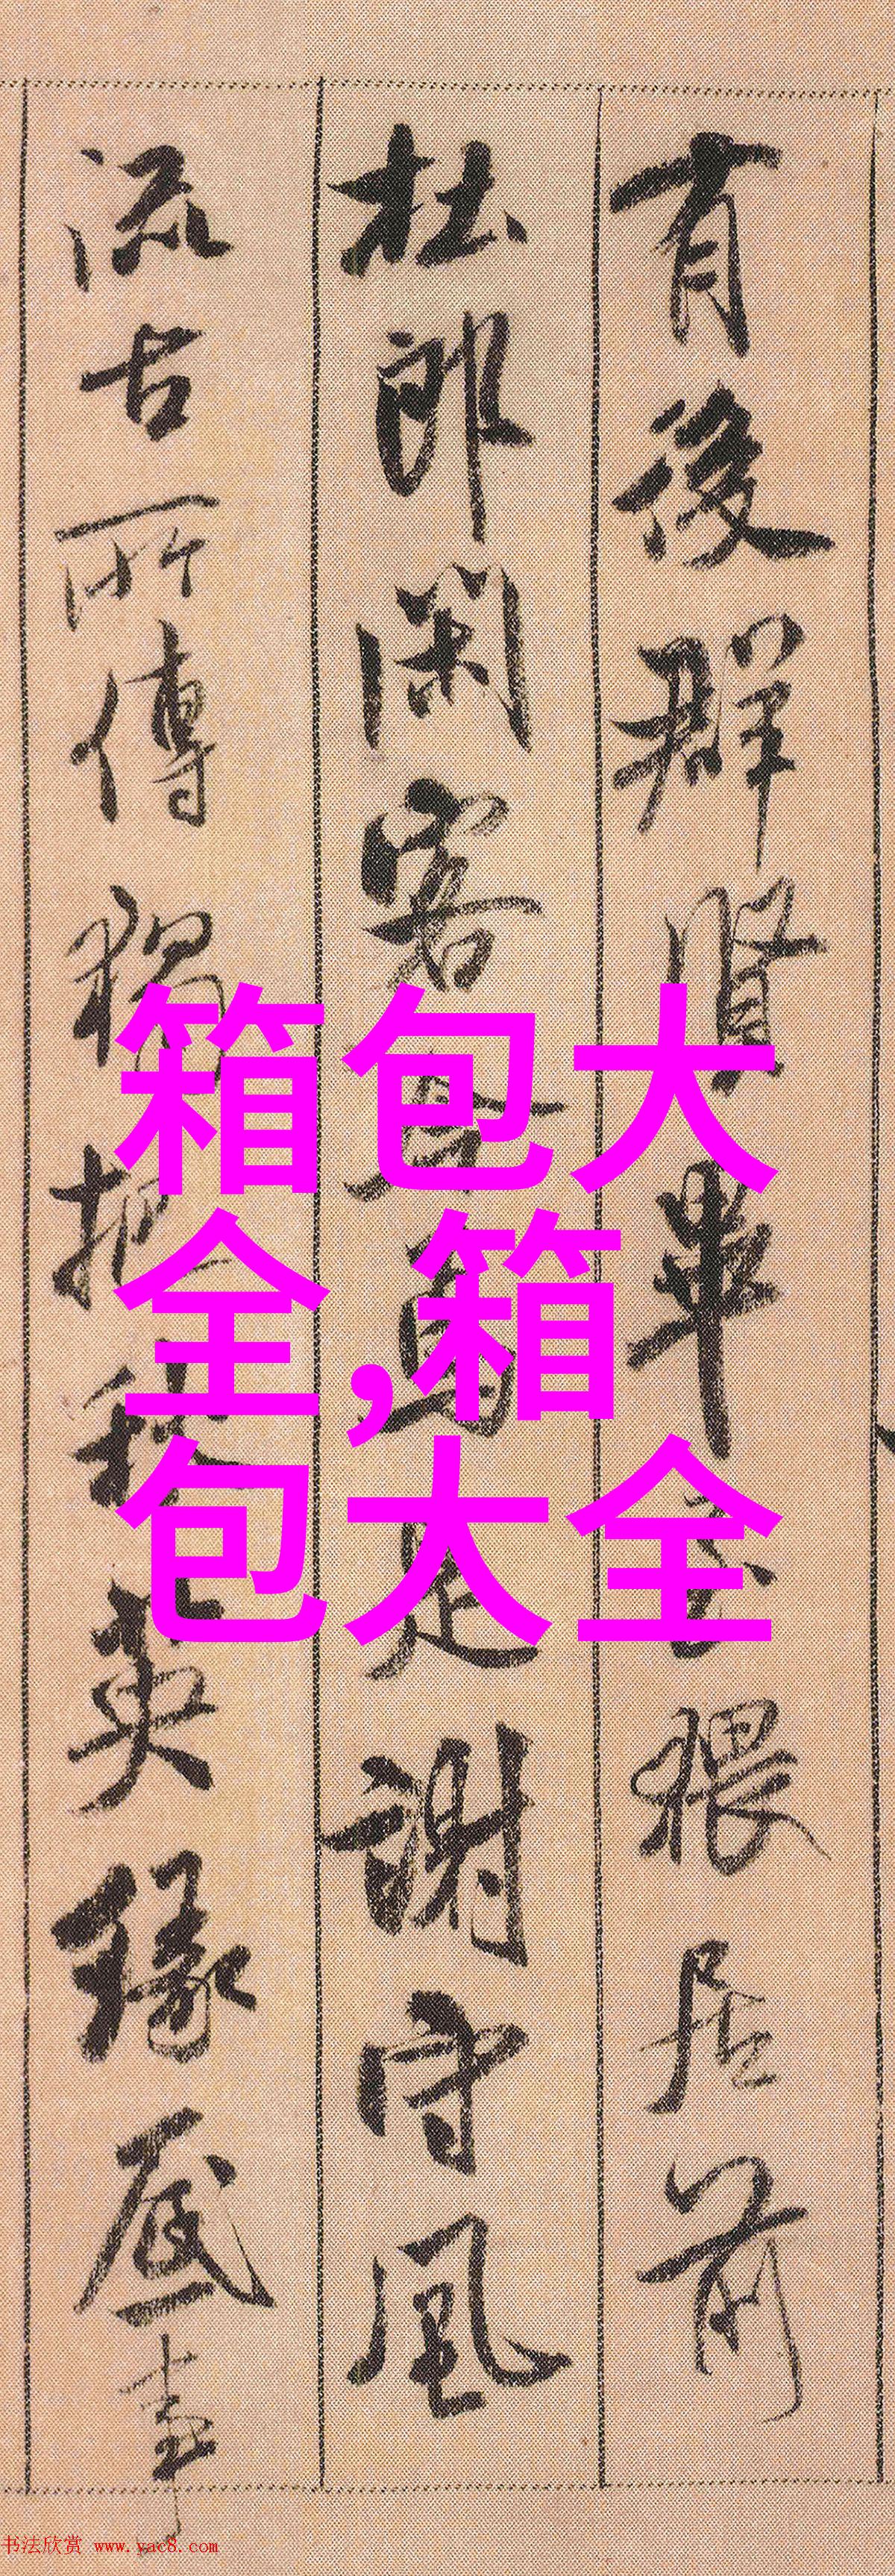 有後群賢畢至猥居前
杜郎閑客今焉是謝守風
流古所傳獨把秋英緣底事
箱包大
全,箱
包大全
书法欣赏 www.yac8.com